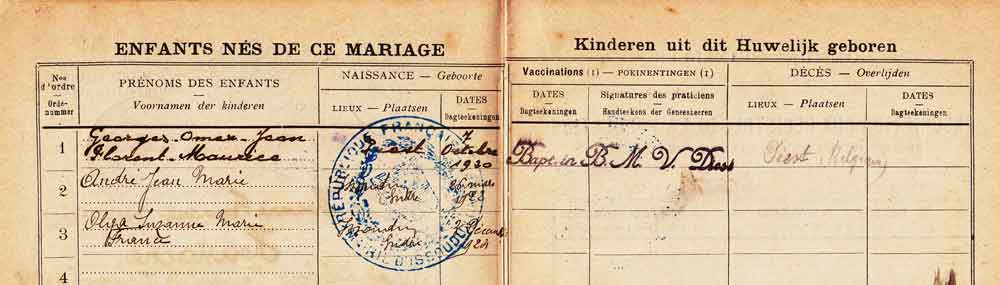 ENFANTS NÉS DE CE MARIAGE
Kinderen uit dit Huwelijk geboren
Nos d'ordre
Orde-nummer
PRÉNOMS DES ENFANTS
Voornamen der kinderen
NAISSANCE — Geboorte
LIEUX — Plaatsen
DATES
Dagteekeningen
Vaccinations (1) — POKINENTINGEN (1)
DATES
Dagteekeningen
Signatures des praticiens
Handteekens der Geneesheeren
DÉCÈS — Overlijden
LIEUX — Plaatsen
DATES
Dagteekeningen
1
Georges Omer Jean
Florent Maurice
7
Octobre
1920
B. M. V.
2
André Jean Marie
3
Olga Suzanne Marie
France
4
RÉPUBLIQUE FRANÇAISE
MAIRIE D'ISSOUDUN